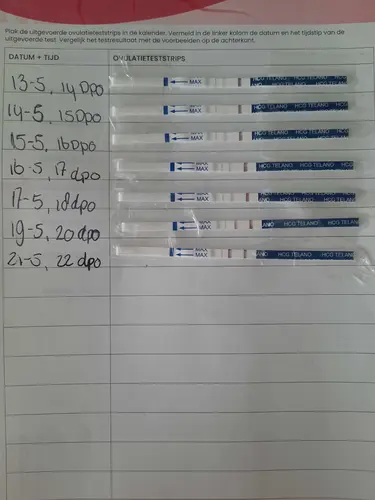 Plak de uitgevoerde ovulatieteststrips in de kalender. Vermeld in de linker kolom de datum en het tijdstip van de
uitgevoerde test. Vergelijk het testresultaat met de voorbeelden op de achterkant.
DATUM + TIJD OVULATIETESTSTRIPS
13-5, 14 Dpo MAX HCG TELANO HCG TELANO
14-5, 15 Dpo MAX HCG TELANO HCG TELANO HCG
15-5, 16 Dpo MAX
16-5, 17 dpo MAX HCG TELANO HCG TELANO HCG
17-5, 18 dpo MAX
19-5, 20 dpo MAX ANO HCG TELANO HCG TELANO
21-5, 22 dpo MAX ANO HCG TELANO HCG TELANO